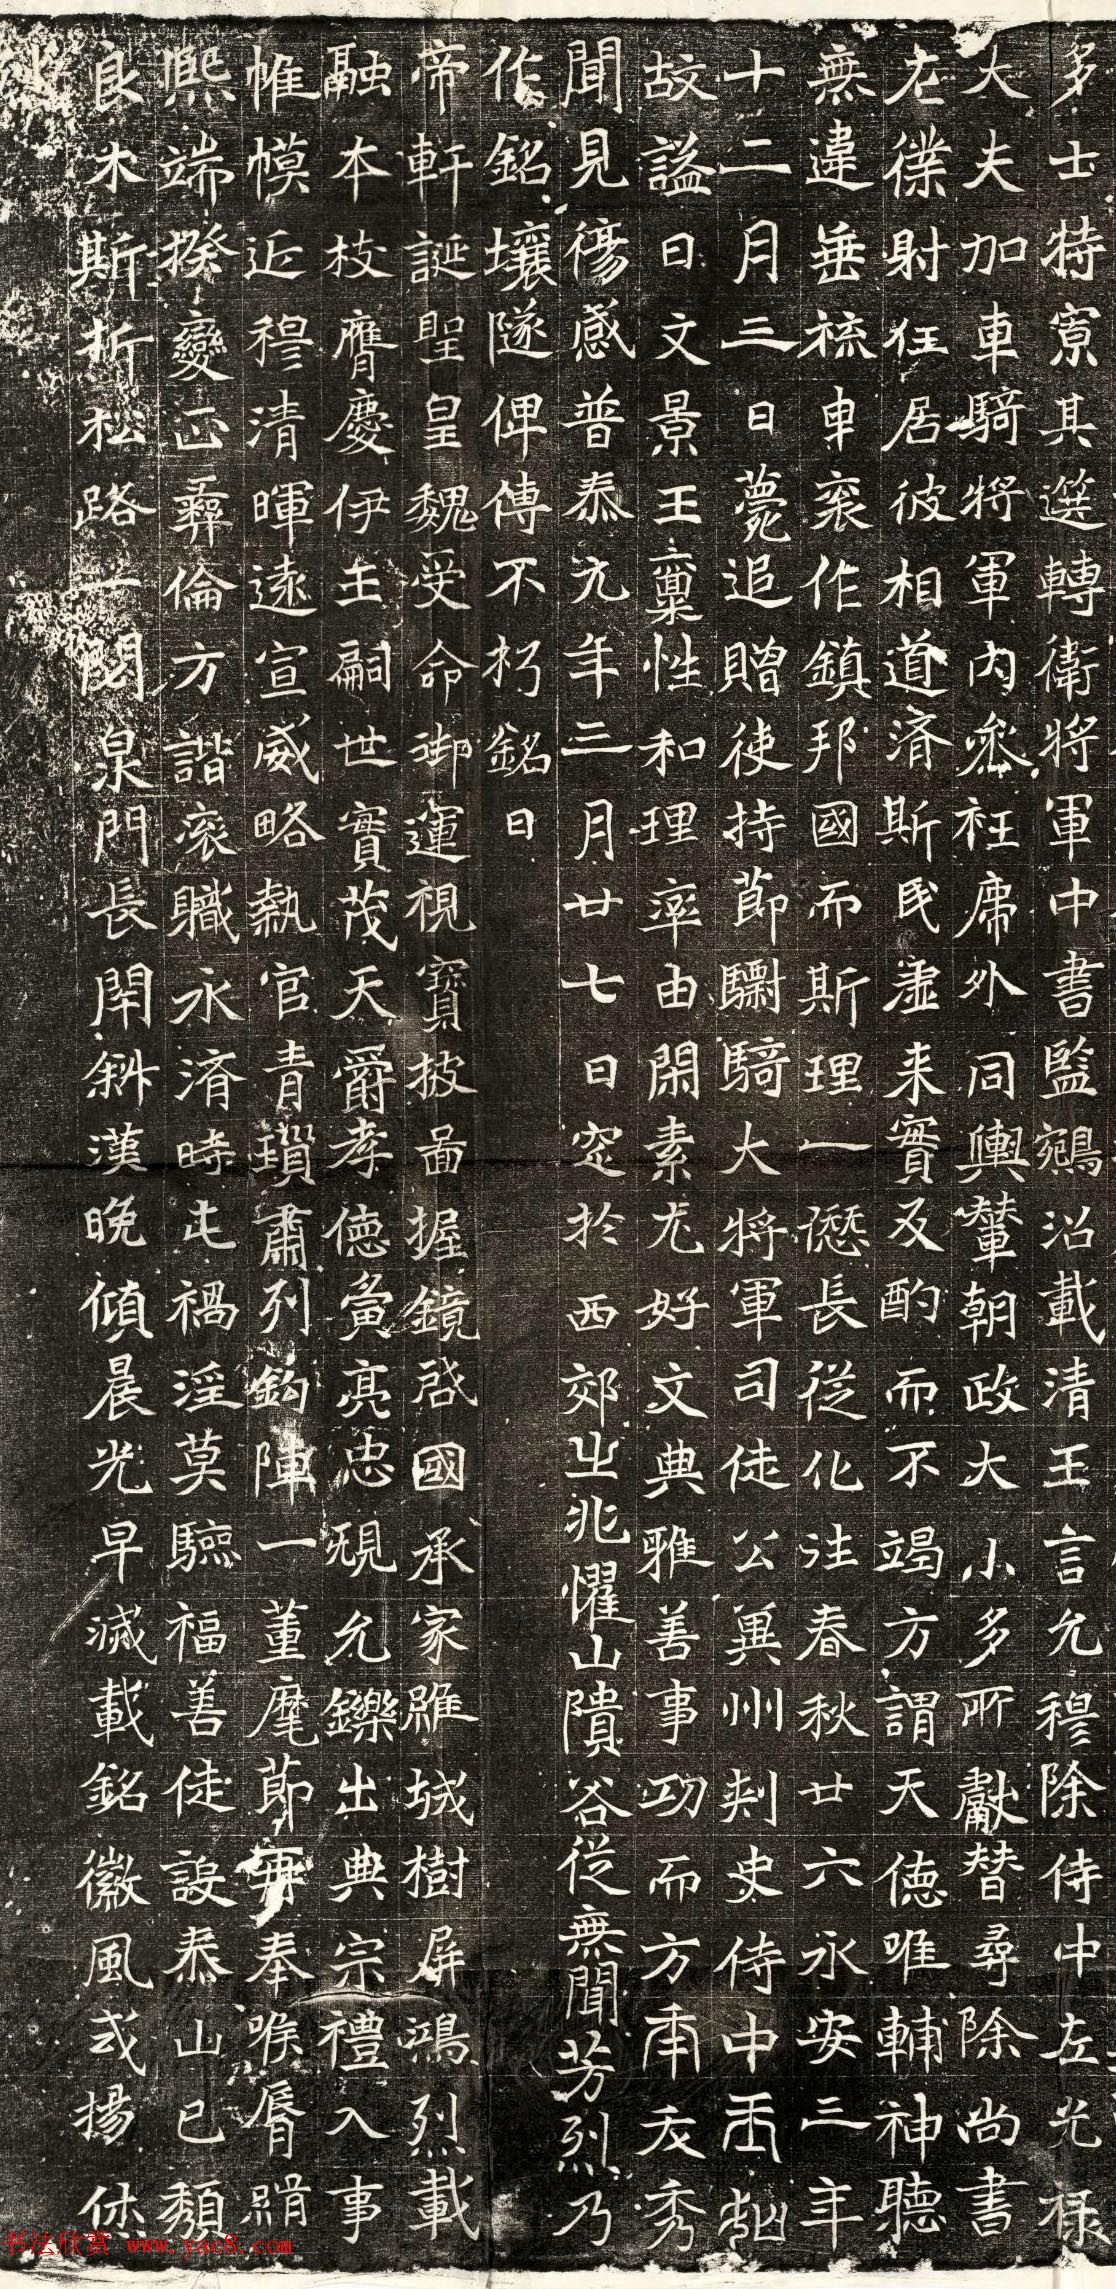 多士特寮其選轉衛將軍中書監鵷沼載清王言允穆除侍中左光祿
大夫加車騎將軍內參衽席外同輿輦朝政大小多所獻替尋除尚書
左僕射任居彼相道濟斯民虛來實反酌而不竭方謂天德唯輔神聽
無違垂旒車袞作鎮邦國而斯理一諐長從化往春秋廿六永安三年
十二月三日薨追贈使持節驃騎大將軍司徒公冀州刺史侍中王如
故諡曰文景王稟性和理率由閑素尤好文典雅善事功而方年夭秀
聞見傷感普泰元年三月廿七日窆於西郊之兆懼山隤谷從無聞芳烈乃
作銘壤隧俾傳不朽銘曰
帝軒誕聖皇魏受命御運視寶披啚握鏡啟國承家雕城樹屏鴻烈載
融本枝膺慶伊王嗣世實茂天爵孝德亮忠允鑠出典宗禮入事
帷幙近穆清暉遠宣威略執官青瑣肅列鈎陣一董麾節再奉喉脣緝
熙端揆變正彝倫方諧袞職永濟時屯禍淫莫驗福善徒設泰山已頹
良木斯折松路一閟泉門長閈斜漢晚傾晨光早滅載銘徽風式揚休
书法欣赏 www.yac8.com